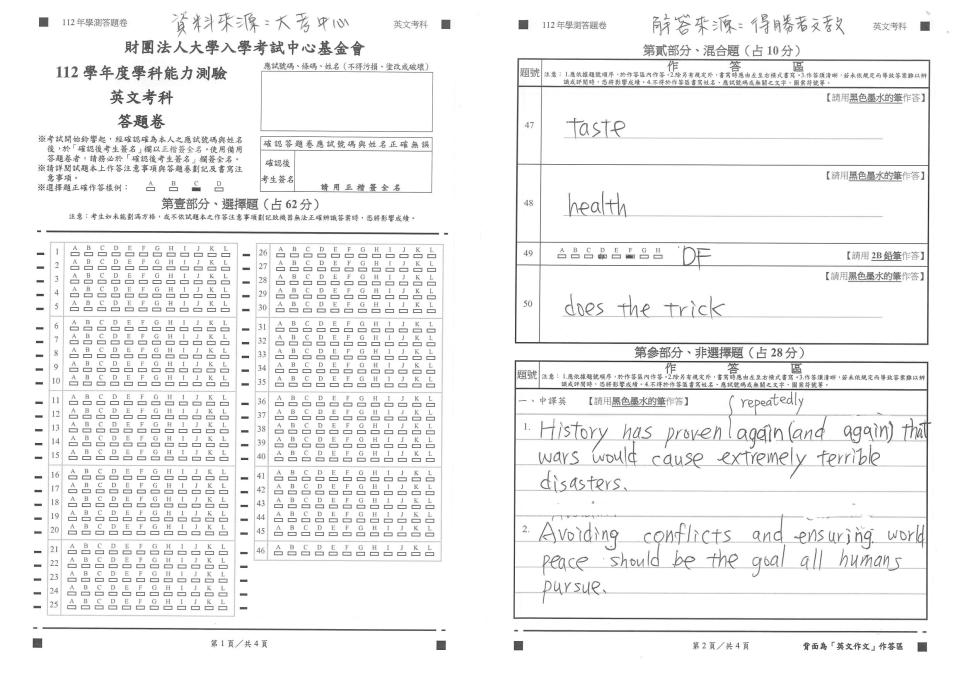 112 年學測答題卷
資料來源=大考中心
英文考科
財團法人大學入學考試中心基金會
112 學年度學科能力測驗
英文考科
答題卷
應試號碼、條碼、姓名(不得污損、塗改或破壞)
確認答題卷應試號碼與姓名正確無誤
確認後
考生簽名
請用正楷簽全名
※考試開始鈴響起,經確認確為本人之應試號碼與姓名
後,於「確認後考生簽名」欄以正楷簽全名。使用備用
答題卷者,請務必於「確認後考生簽名」欄簽全名。
※請詳閱試題本上作答注意事項與答題卷劃記及書寫注
意事項。
※選擇題正確作答樣例:
A B C D
第壹部分、選擇題(占 62 分)
注意:考生如未能劃滿方格,或不依試題本之作答注意事項劃記致機器無法正確辨識答案時,恐將影響成績。
1 A B C D E F G H I J K L
2 A B C D E F G H I J K L
3 A B C D E F G H I J K L
4 A B C D E F G H I J K L
5 A B C D E F G H I J K L
6 A B C D E F G H I J K L
7 A B C D E F G H I J K L
8 A B C D E F G H I J K L
9 A B C D E F G H I J K L
10 A B C D E F G H I J K L
11 A B C D E F G H I J K L
12 A B C D E F G H I J K L
13 A B C D E F G H I J K L
14 A B C D E F G H I J K L
15 A B C D E F G H I J K L
16 A B C D E F G H I J K L
17 A B C D E F G H I J K L
18 A B C D E F G H I J K L
19 A B C D E F G H I J K L
20 A B C D E F G H I J K L
21 A B C D E F G H I J K L
22 A B C D E F G H I J K L
23 A B C D E F G H I J K L
24 A B C D E F G H I J K L
25 A B C D E F G H I J K L
26 A B C D E F G H I J K L
27 A B C D E F G H I J K L
28 A B C D E F G H I J K L
29 A B C D E F G H I J K L
30 A B C D E F G H I J K L
31 A B C D E F G H I J K L
32 A B C D E F G H I J K L
33 A B C D E F G H I J K L
34 A B C D E F G H I J K L
35 A B C D E F G H I J K L
36 A B C D E F G H I J K L
37 A B C D E F G H I J K L
38 A B C D E F G H I J K L
39 A B C D E F G H I J K L
40 A B C D E F G H I J K L
41 A B C D E F G H I J K L
42 A B C D E F G H I J K L
43 A B C D E F G H I J K L
44 A B C D E F G H I J K L
45 A B C D E F G H I J K L
46 A B C D E F G H I J K L
第 1 頁/共 4 頁
112 年學測答題卷
解答來源=得勝者文教
英文考科
第貳部分、混合題(占 10 分)
作 答 區
題號
注意:1.應依據題號順序,於作答區內作答。2.除另有規定外,書寫時應由左至右橫式書寫。3.作答須清晰,若未依規定而導致答案難以辨
識或評閱時,恐將影響成績。4.不得於作答區書寫姓名、應試號碼或無關之文字、圖案符號等。
【請用黑色墨水的筆作答】
47 taste
【請用黑色墨水的筆作答】
48 health
49 A B C D E F G H DF 【請用 2B 鉛筆作答】
【請用黑色墨水的筆作答】
50 does the trick
第參部分、非選擇題(占 28 分)
作 答 區
題號
注意:1.應依據題號順序,於作答區內作答。2.除另有規定外,書寫時應由左至右橫式書寫。3.作答須清晰,若未依規定而導致答案難以辨
識或評閱時,恐將影響成績。4.不得於作答區書寫姓名、應試號碼或無關之文字、圖案符號等。
一、中譯英 【請用黑色墨水的筆作答】 repeatedly
1. History has proven again (and again) that
wars would cause extremely terrible
disasters.
2. Avoiding conflicts and ensuring world
peace should be the goal all humans
pursue.
第 2 頁/共 4 頁
背面為「英文作文」作答區